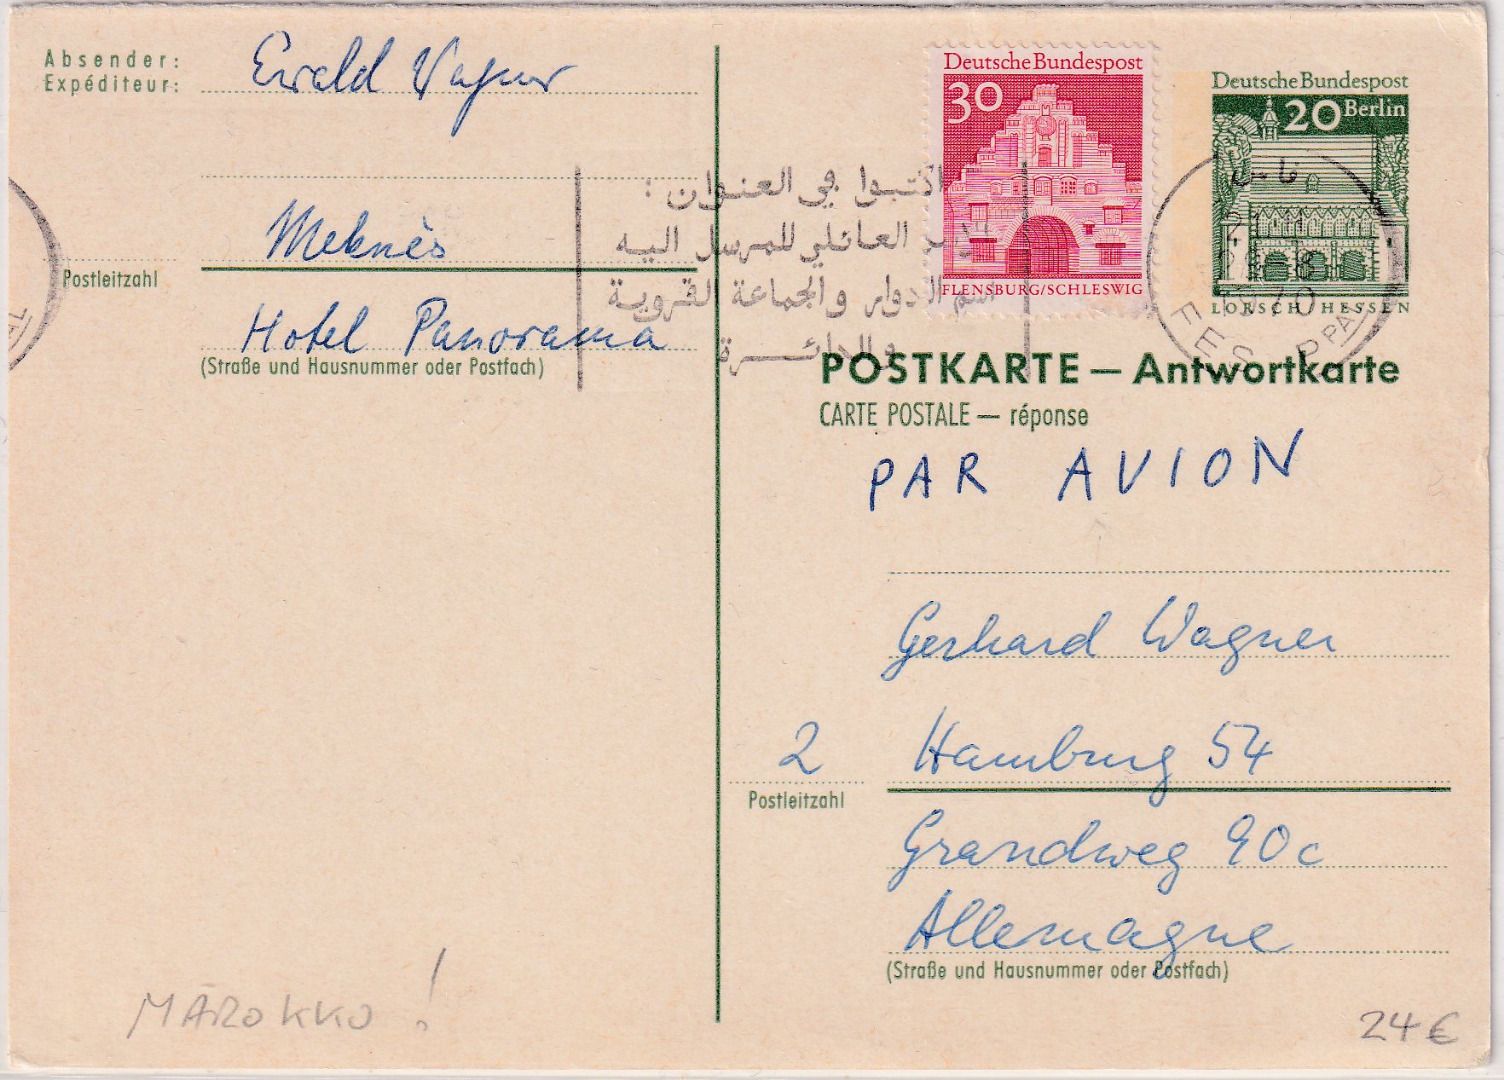 Absender:
Expéditeur:
Ewald
Meknès
Postleitzahl
Hotel Panorama
(Straße und Hausnummer oder Postfach)
MAROKKO!
اكتبوا في العنوان :
العائلي للمرسل اليه
اسم الدوار والجماعة القروية
والدائرة
Deutsche Bundespost
30
FLENSBURG/SCHLESWIG
Deutsche Bundespost
20 Berlin
LORSCH/HESSEN
فاس
1970
FES PPAL
POSTKARTE — Antwortkarte
CARTE POSTALE — réponse
PAR AVION
Gerhard Wagner
2 Hamburg 54
Postleitzahl
Grandweg 90c
Allemagne
(Straße und Hausnummer oder Postfach)
24 €